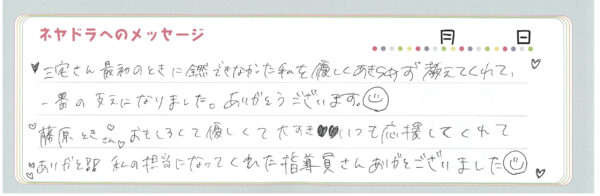 ネヤドラへのメッセージ
月 日
三宅さん最初のときに全然できなかった私を優しくあきらめず教えてくれて、
一番の支えになりました。ありがとうございます。
藤原ときさんおもしろくて優しくて大すきいつも応援してくれて
ありがと!! 私の担当になってくれた指導員さんありがとございました